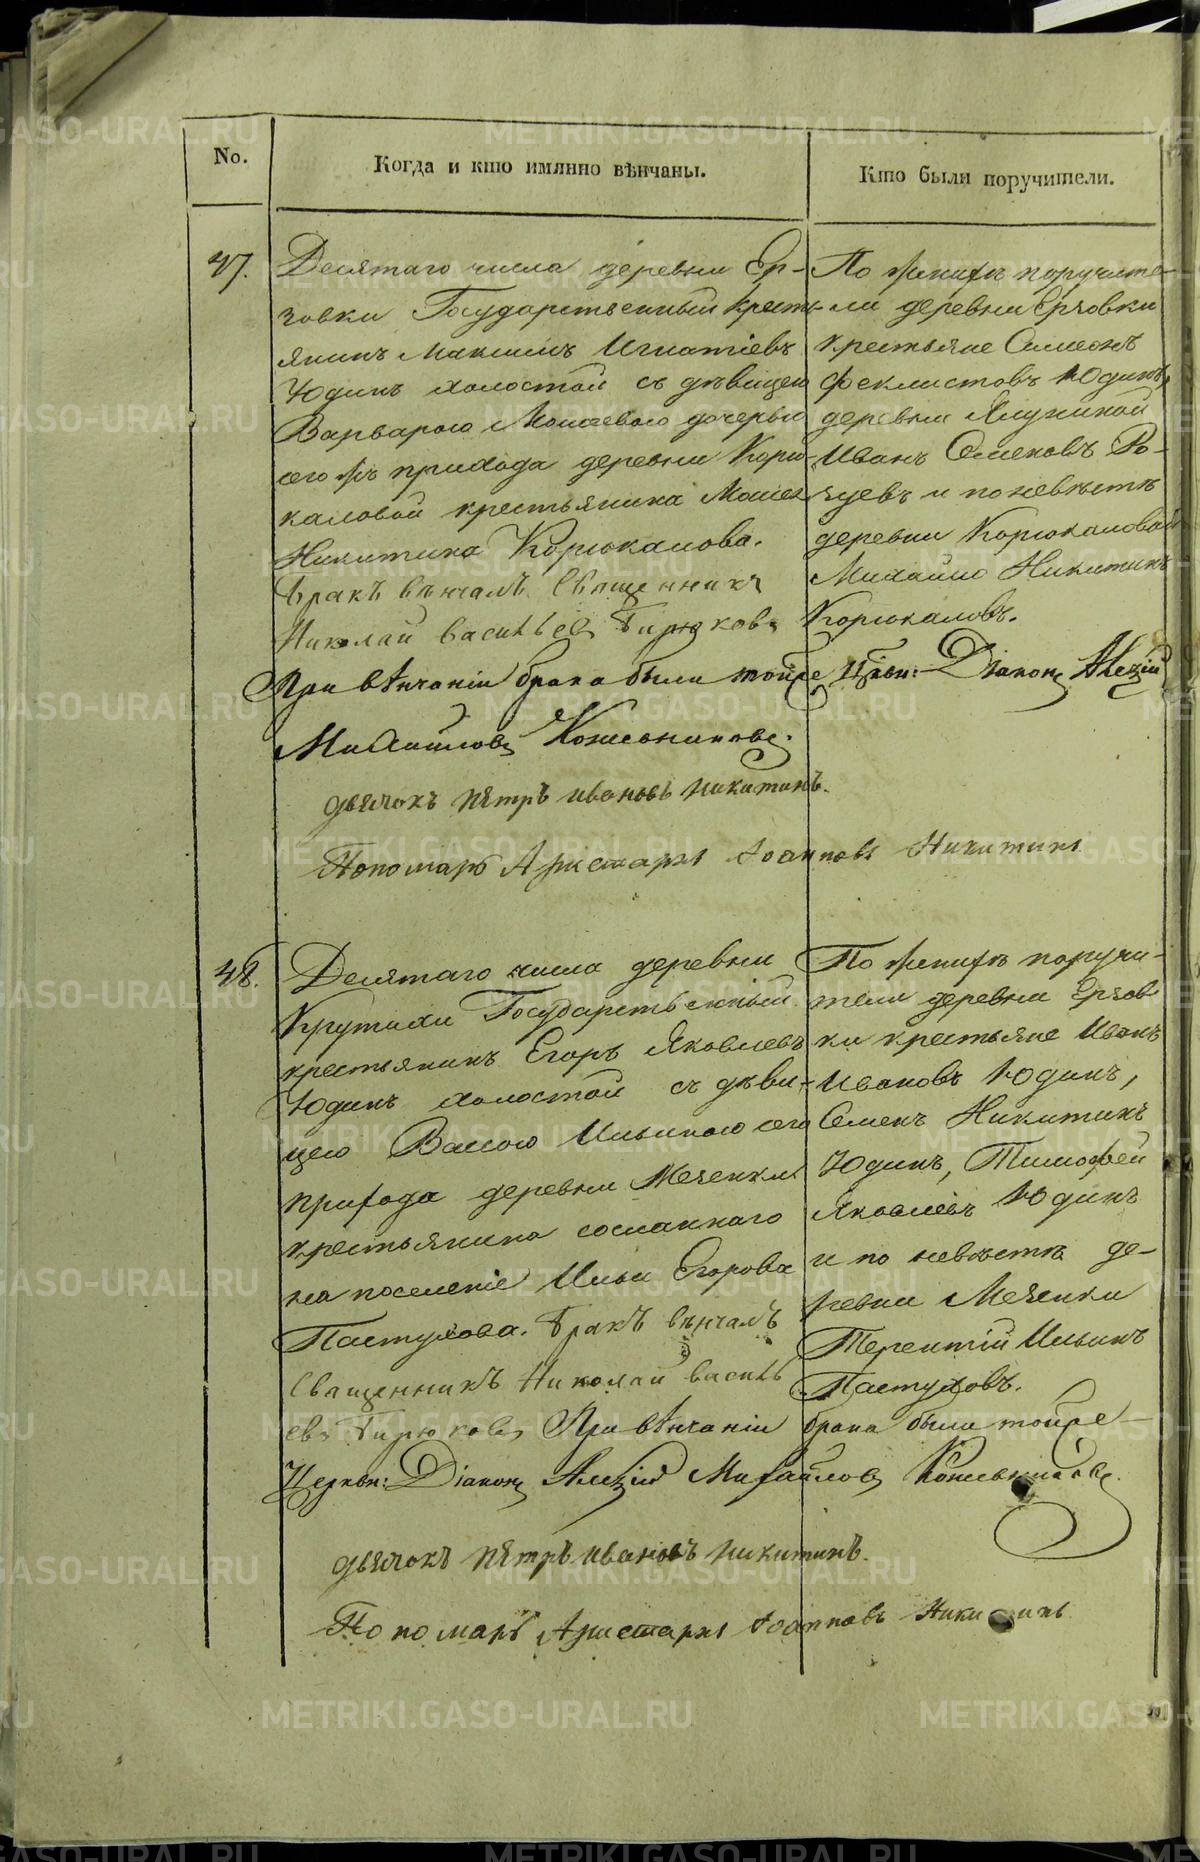 No.
Когда и кто имянно вѣнчаны.
Кто были поручители.
47.
Десятаго числа деревни Ер-
зовки Государственный кресть-
янинъ Максимъ Игнатіевъ
Юдинъ холостой съ дѣвицею
Варварою Моисеевою дочерью
сего жъ прихода деревни Корю-
каловой крестьянина Моисея
Никитина Корюкалова.
Бракъ вѣнчалъ Священникъ
Николай Васильевъ Бирюковъ
По женихѣ поручите-
ли деревни Ерзовки
крестьяне Симеонъ
Феклистовъ Юдинъ,
деревни Ялуниной
Иванъ Семеновъ
и по невѣстѣ
деревни Корюкаловой
Михайло Никитинъ
Корюкаловъ.
При вѣнчаніи брака были тойже Церкви: Діаконъ Алексій
Михайловъ Кожевниковъ.
дьячокъ пѣтръ ивановъ никитинъ.
Пономарь Аристархъ Іоанновъ Никитинъ
48.
Десятаго числа деревни
Крутихи Государственный
крестьянинъ Егоръ Яковлевъ
Юдинъ холостой съ дѣви-
цею Вассою Ильиною сего
прихода деревни Меченки
крестьянина сосланнаго
на поселеніе Ильи Егорова
Пастухова. Бракъ вѣнчалъ
Священникъ Николай Василь
евъ Бирюковъ При вѣнчаніи брака были тойже
По женихѣ поручи-
тели деревни Ерзов-
ки крестьяне Иванъ
Ивановъ Юдинъ,
Семенъ Никитинъ
Юдинъ, Тимофей
Яковлевъ Юдинъ
и по невѣстѣ де-
ревни Меченки
Терентій Ильинъ
Пастуховъ.
Церкви: Діаконъ Алексій Михайловъ Кожевниковъ.
дьячокъ пѣтръ ивановъ никитинъ.
Пономарь Аристархъ Іоанновъ Никитинъ
METRIKI.GASO-URAL.RU